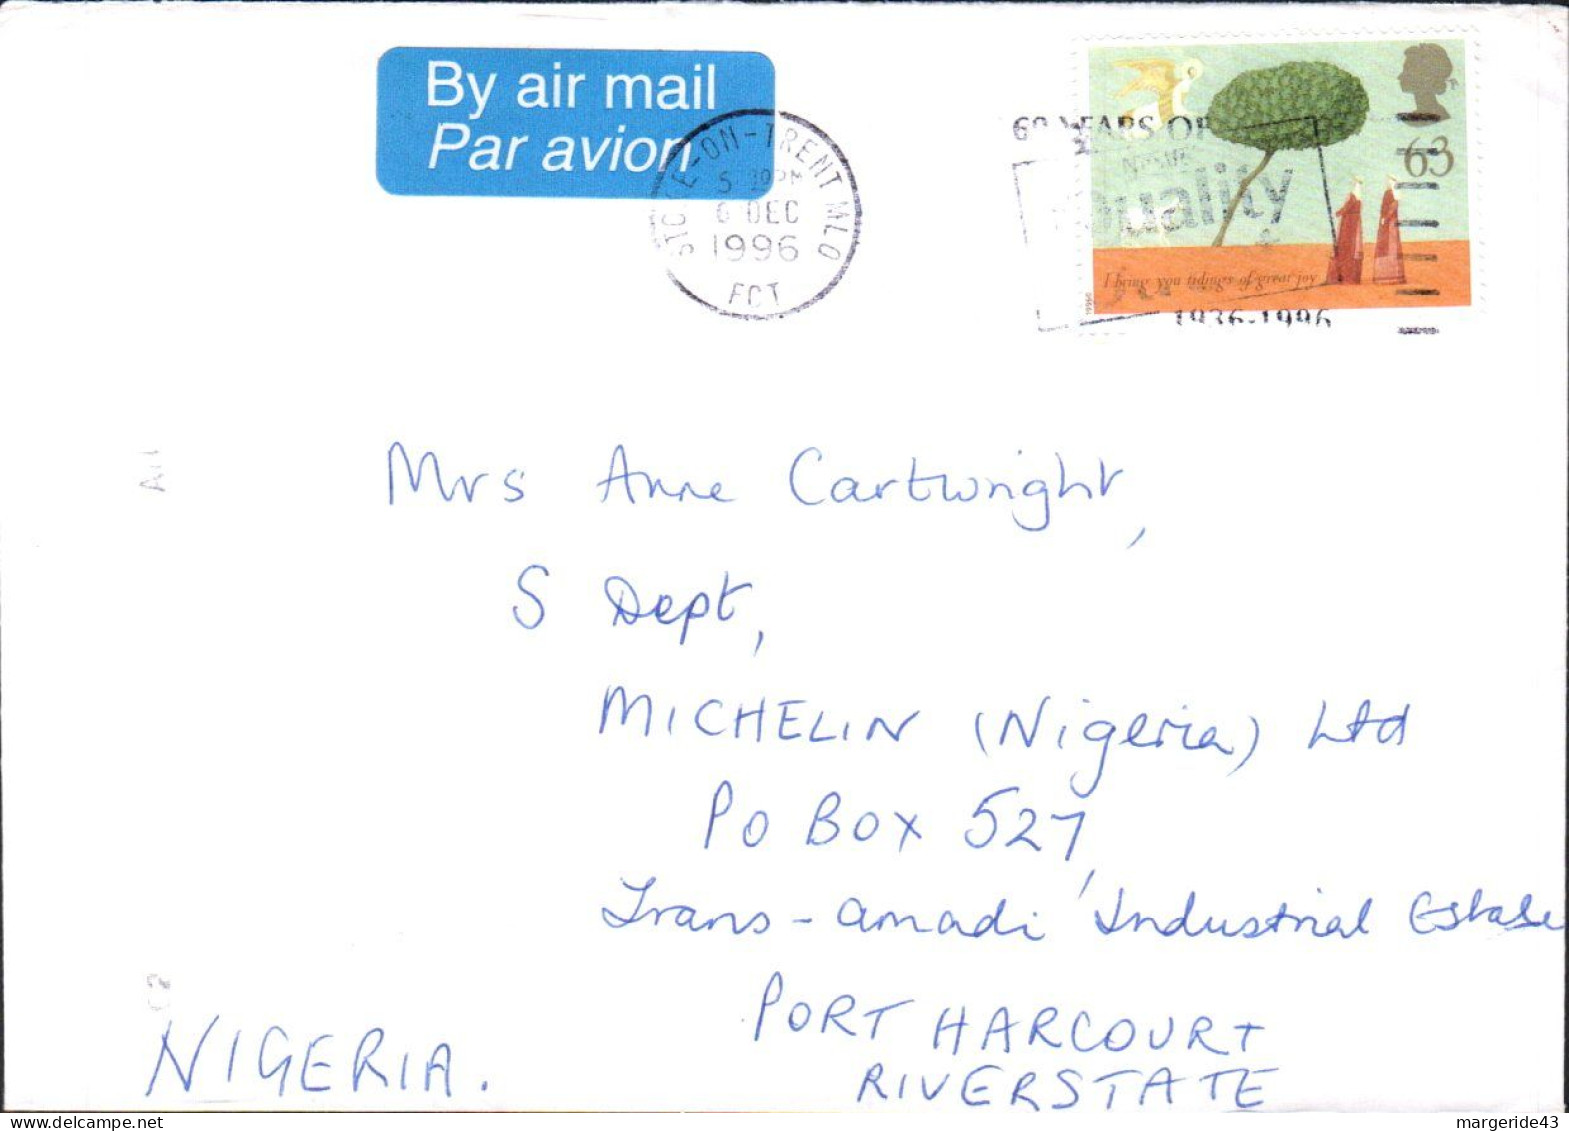 By air mail
Par avion
-ON-TRENT MLO
6 DEC
1996
YEARS OF
quality
1936-1996
63
I bring you tidings of great joy
Mrs Anne Cartwright,
S Dept,
MICHELIN (Nigeria) Ltd
PO BOX 527,
Trans-amadi Industrial Estate
PORT HARCOURT
RIVERSTATE
NIGERIA.
www.delcampe.net
margeride43